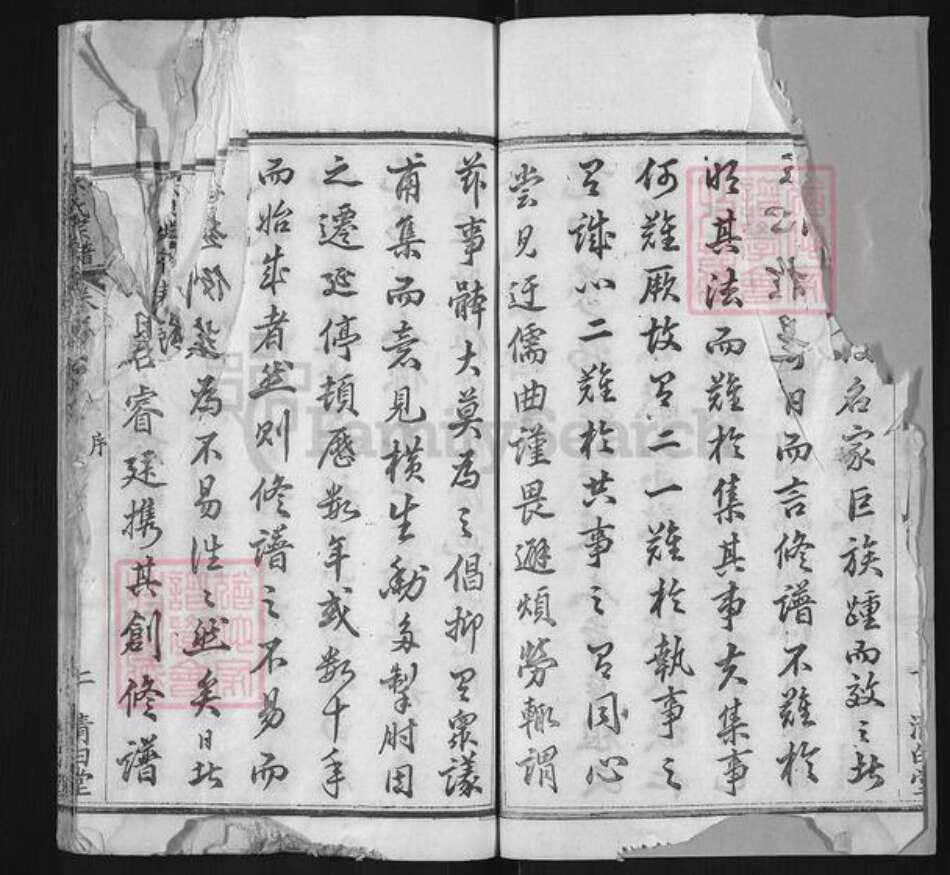 名家巨族踵而效之此
日而言修譜不難於
明其法而難於集其事夫集事
何難厥故有二一難於執事之
有誠心二難於共事之有同心
嘗見迂儒曲謹畏避煩勞輒謂
茲事體大莫為之倡抑且眾議
甫集而意見橫生動多掣肘因
之遷延停頓歷數年或數十年
而始成者然則修譜之不易而
為不易也之然矣日者
睿廷携其創修譜
序
一 清白堂
二 清白堂
FamilySearch